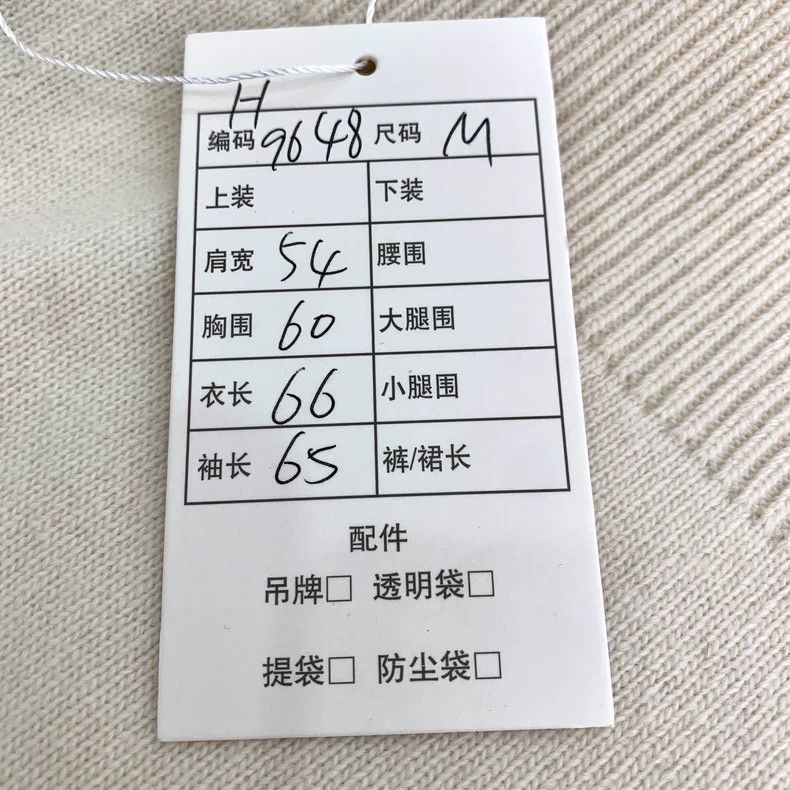 H
编码 9648 尺码 M
上装 下装
肩宽 54 腰围
胸围 60 大腿围
衣长 66 小腿围
袖长 65 裤/裙长
配件
吊牌□ 透明袋□
提袋□ 防尘袋□